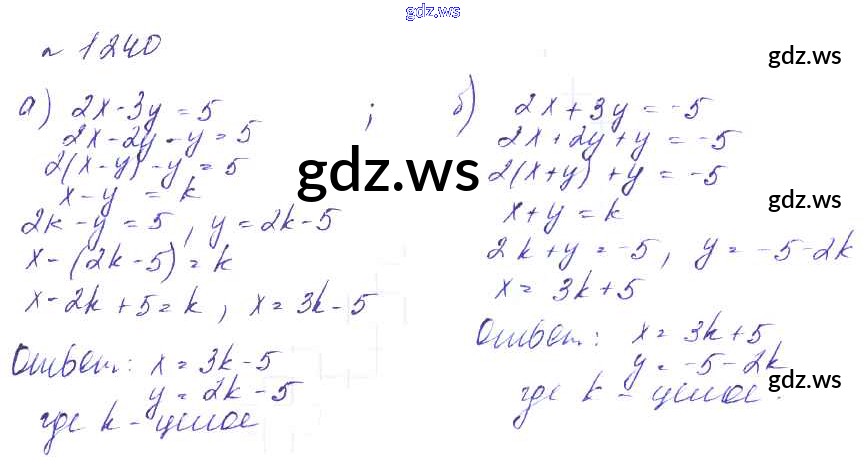 gdz.ws
№ 1240
gdz.ws
а) 2x - 3y = 5 ;
2x - 2y - y = 5
2(x - y) - y = 5
x - y = k
2k - y = 5, y = 2k - 5
x - (2k - 5) = k
x - 2k + 5 = k, x = 3k - 5
Ответ: x = 3k - 5
y = 2k - 5
где k - целое
gdz.ws
б) 2x + 3y = -5
2x + 2y + y = -5
2(x + y) + y = -5
gdz.ws
x + y = k
2k + y = -5, y = -5 - 2k
x = 3k + 5
Ответ: x = 3k + 5
y = -5 - 2k
gdz.ws
где k - целое.